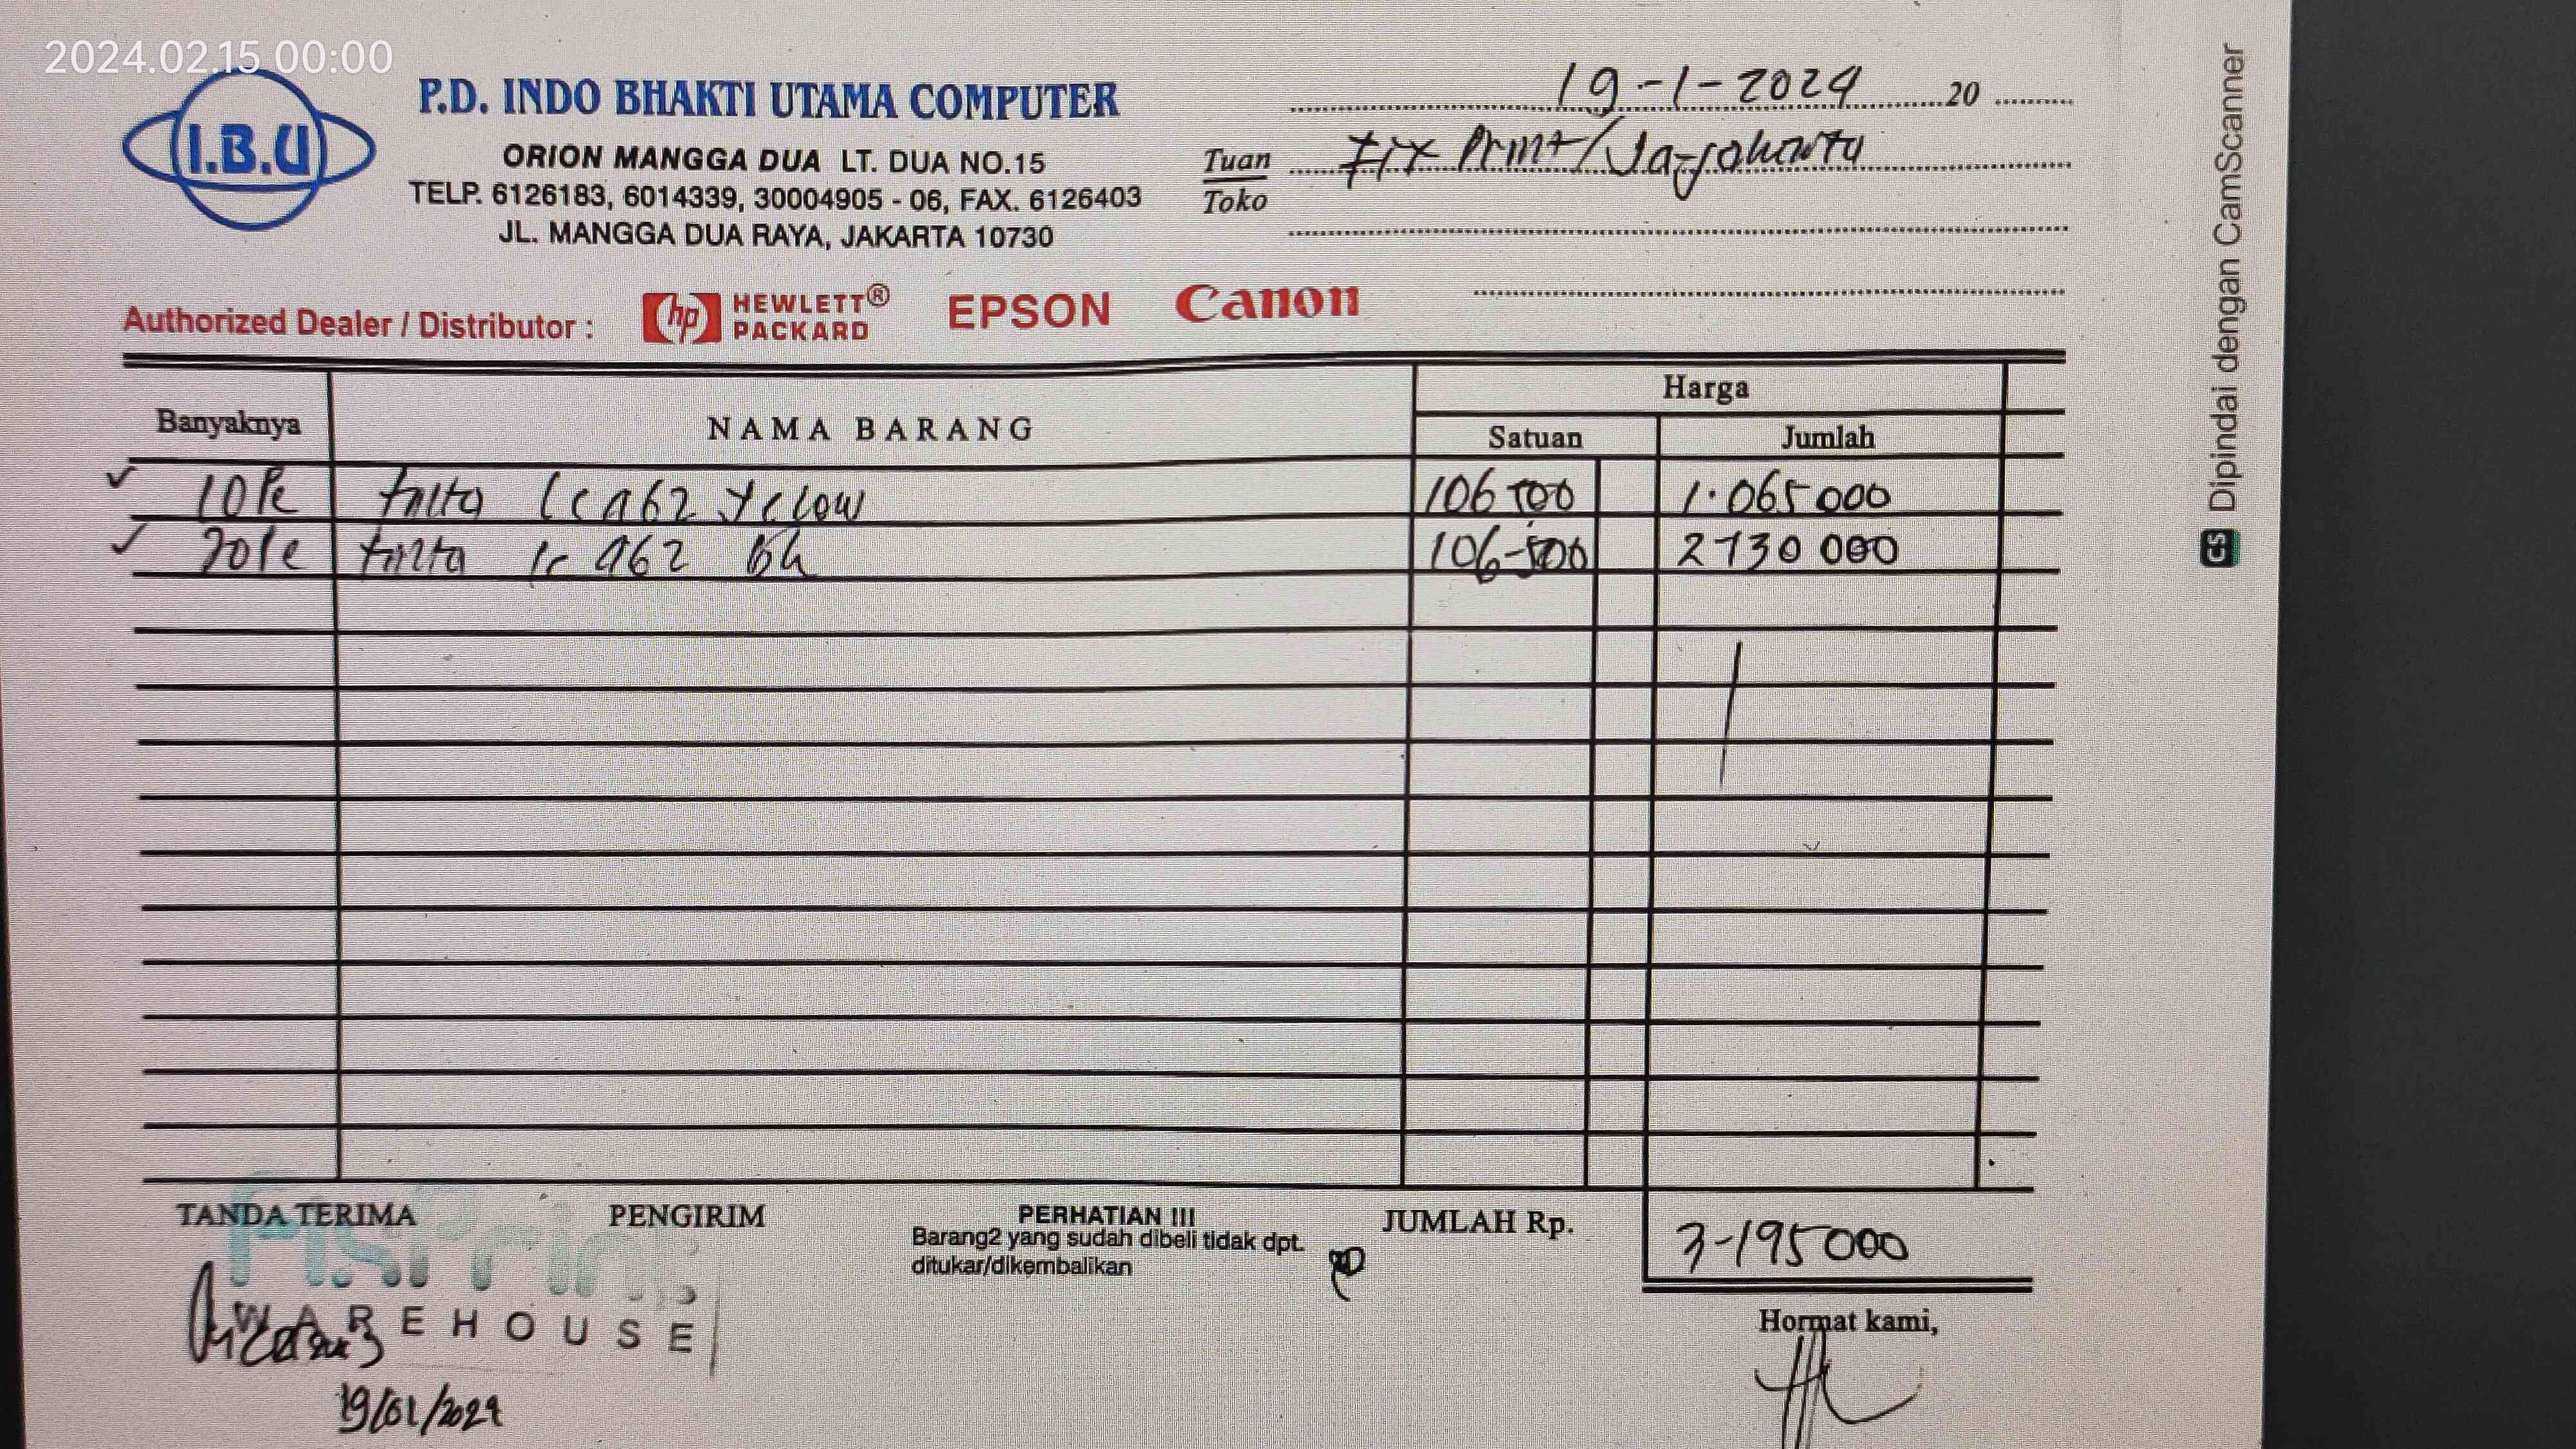 2024.02.15 00:00
I.B.U
P.D. INDO BHAKTI UTAMA COMPUTER
ORION MANGGA DUA LT. DUA NO.15
TELP. 6126183, 6014339, 30004905 - 06, FAX. 6126403
JL. MANGGA DUA RAYA, JAKARTA 10730
19-1-2024 20
Tuan
Toko
Fix Print/
Authorized Dealer / Distributor :
hp HEWLETT® PACKARD
EPSON
Canon
Banyaknya
NAMA BARANG
Harga
Satuan
Jumlah
10 Pc tinta 62 Yelow 106 500 1.065 000
20 Pc tinta 62 106-500 2130 000
TANDA TERIMA
PENGIRIM
PERHATIAN III
Barang2 yang sudah dibeli tidak dpt.
ditukar/dikembalikan
JUMLAH Rp.
3-195000
WAREHOUSE
19/01/2024
Hormat kami,
Dipindai dengan CamScanner
CS